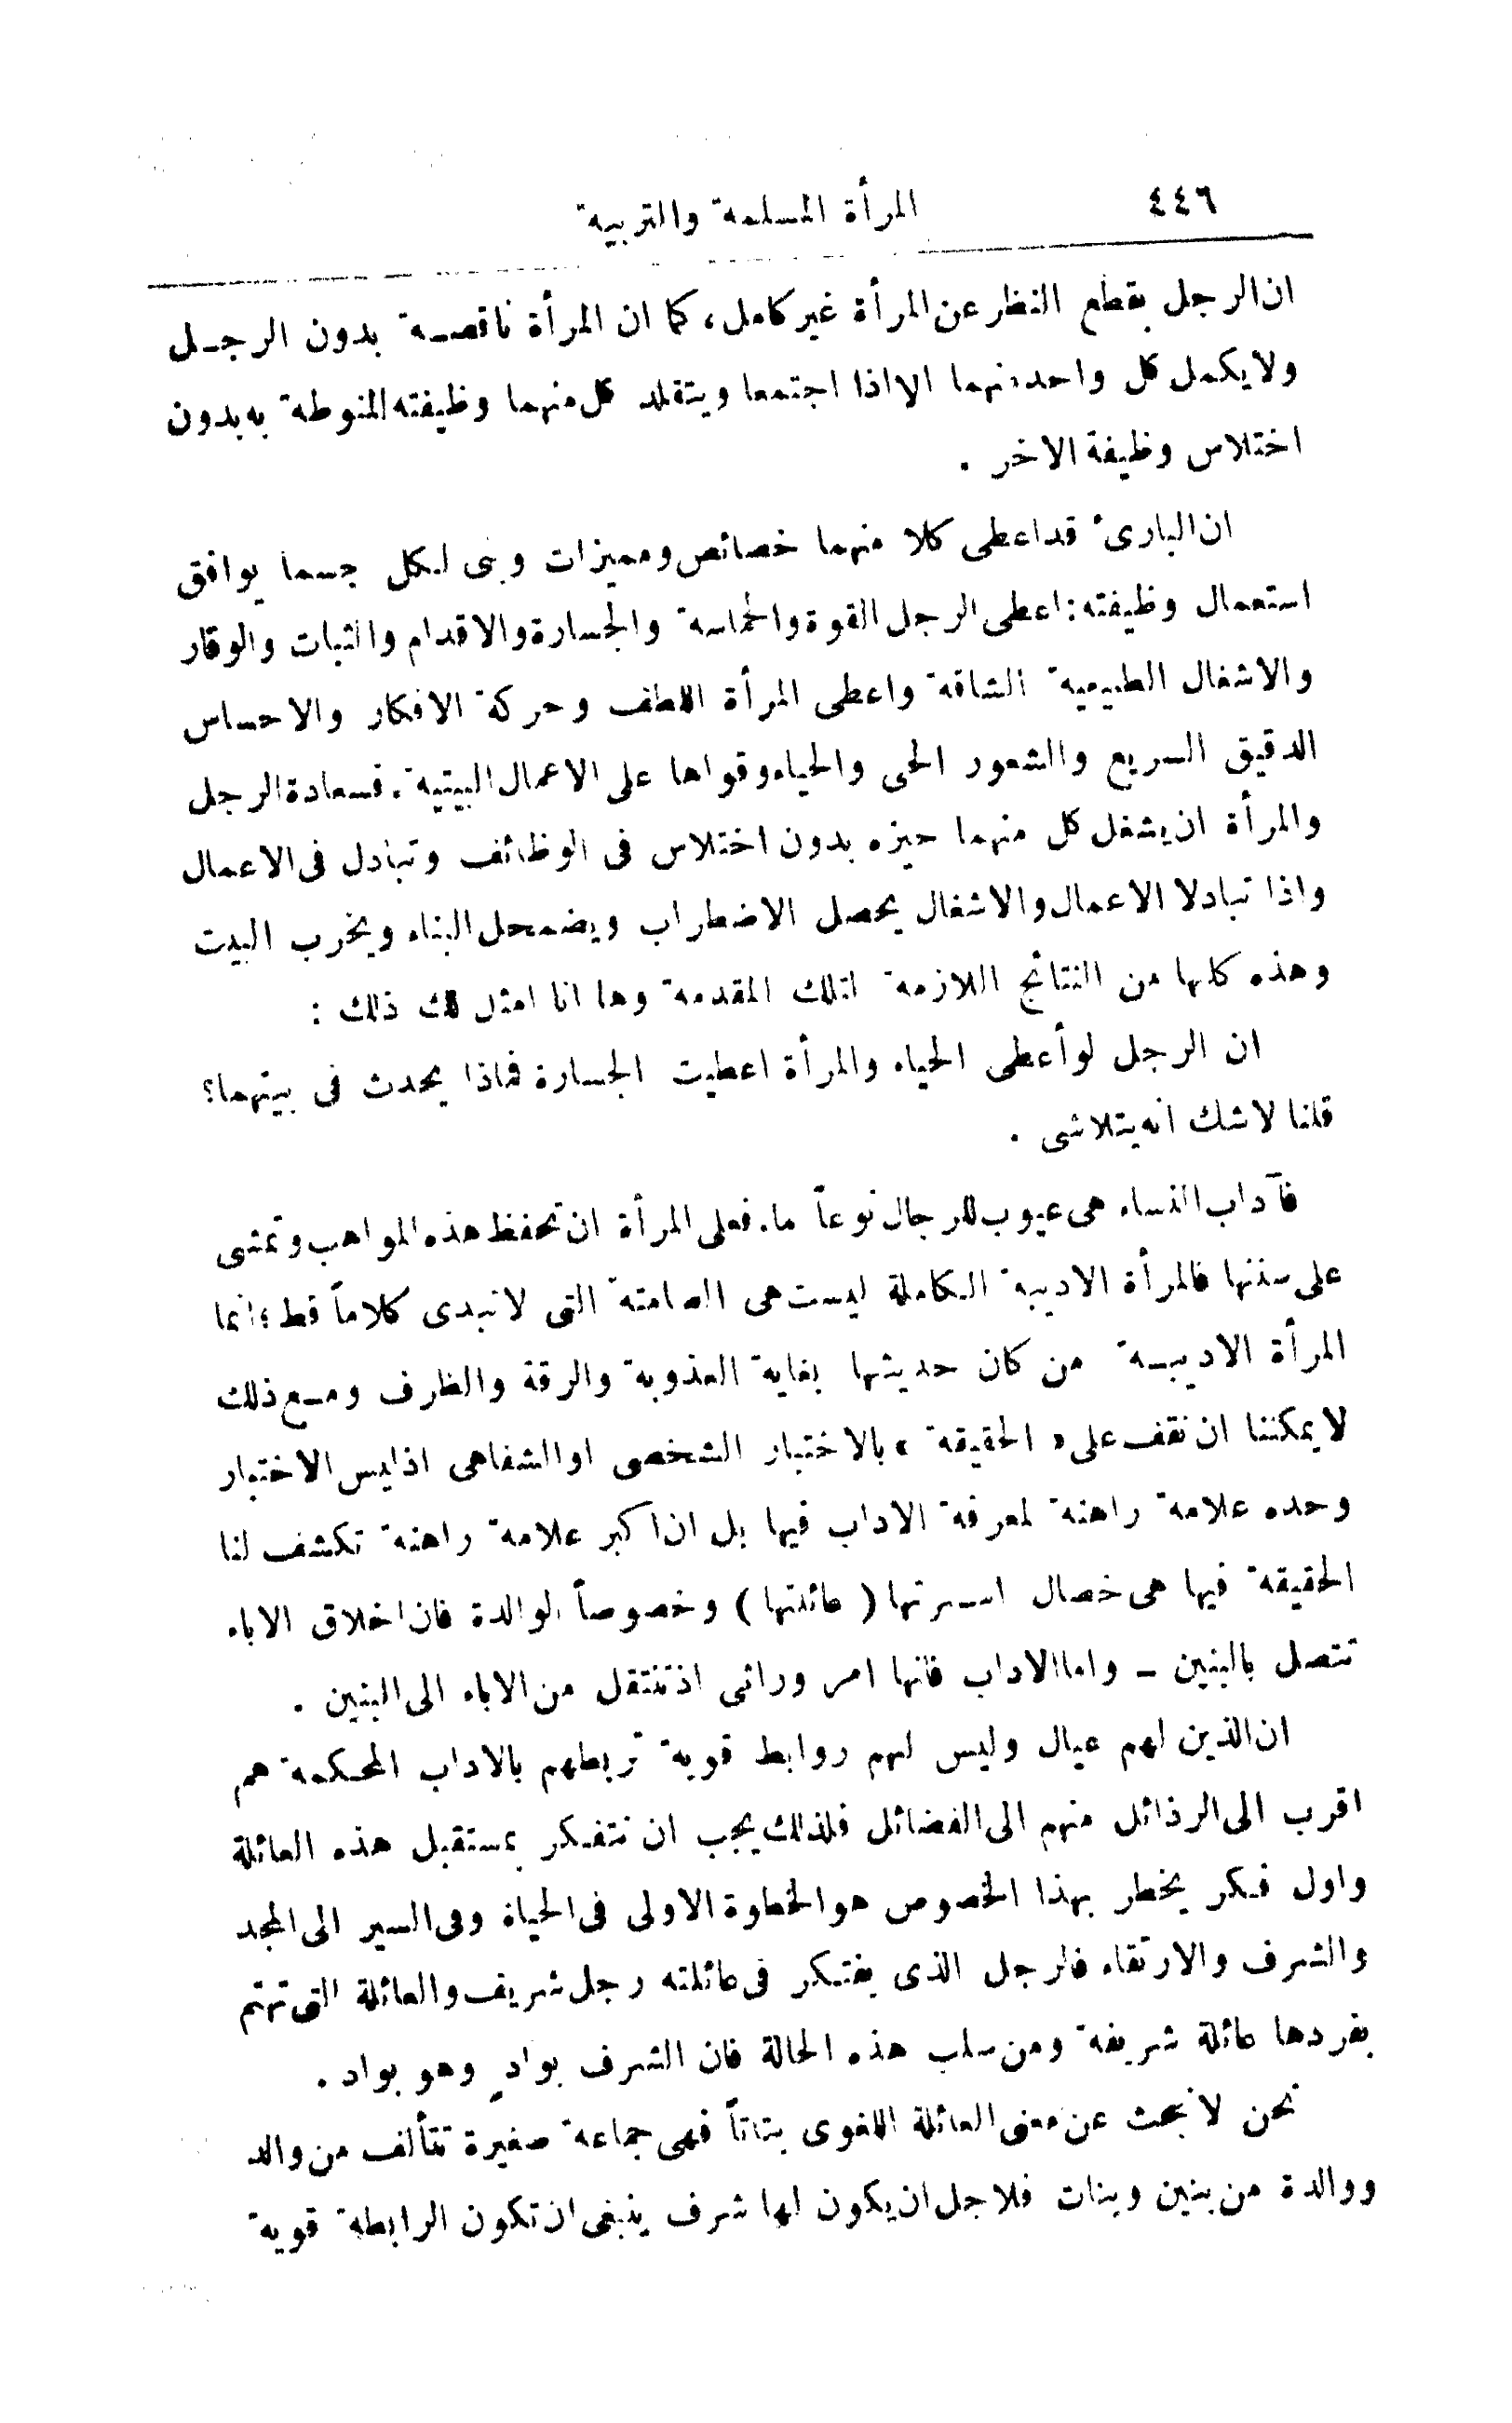 ٤٤٦ المرأة المسلمة والتربية
ان الرجل بقطع النظر عن المرأة غير كامل، كما ان المرأة ناقصة بدون الرجل
ولا يكمل كل واحد منهما الا اذا اجتمعا ويتقلد كل منهما وظيفته المنوطة به بدون
اختلاس وظيفة الاخر .
ان البارئ قد اعطى كلا منهما خصائص ومميزات وبنى لكل جسما يوافق
استعمال وظيفته: اعطى الرجل القوة والحماسة والجسارة والاقدام والثبات والوقار
والاشغال الطبيعية الشاقة واعطى المرأة اللطف وحركة الافكار والاحساس
الدقيق السريع والشعور الحى والحياء وقواها على الاعمال البيتية. فسعادة الرجل
والمرأة ان يشغل كل منهما حيزه بدون اختلاس فى الوظائف وتبادل فى الاعمال
واذا تبادلا الاعمال والاشغال يحصل الاضطراب ويضمحل البناء ويخرب البيت
وهذه كلها من النتائج اللازمة لتلك المقدمة وها انا امثل لك ذلك :
ان الرجل لو أعطى الحياء والمرأة اعطيت الجسارة فماذا يحدث فى بيتهما؟
قلنا لا شك انه يتلاشى .
فآداب النساء هى عيوب للرجال نوعاً ما. فعلى المرأة ان تحفظ هذه المواهب وتمشى
على سننها فالمرأة الاديبة الكاملة ليست هى الصامتة التى لا تبدى كلاماً قط؛ انما
المرأة الاديبة من كان حديثها بغاية العذوبة والرقة والظرف ومع ذلك
لا يمكننا ان نقف على « الحقيقة » بالاختبار الشخصى او الشفاهى اذ ليس الاختبار
وحده علامة راهنة لمعرفة الاداب فيها بل ان اكبر علامة راهنة تكشف لنا
الحقيقة فيها هى خصال اسرتها ( عائلتها ) وخصوصاً الوالدة فان اخلاق الاباء
تتصل بالبنين - واما الاداب فانها امر وراثى اذ تنتقل من الاباء الى البنين .
ان الذين لهم عيال وليس لهم روابط قوية تربطهم بالاداب المحكمة هم
اقرب الى الرذائل منهم الى الفضائل فلذلك يجب ان نتفكر بمستقبل هذه العائلة
واول فكر يخطر بهذا الخصوص هو الخطوة الاولى فى الحياة وفى السير الى المجد
والشرف والارتقاء فالرجل الذى يفتكر فى عائلته رجل شريف والعائلة التى تهتم
بفردها عائلة شريفة ومن سلب هذه الحالة فان الشرف بوادٍ وهو بواد .
نحن لا نبحث عن معنى العائلة اللغوى بتاتاً فهى جماعة صغيرة تتألف من والد
ووالدة من بنين وبنات فلاجل ان يكون لها شرف ينبغى ان تكون الرابطة قوية